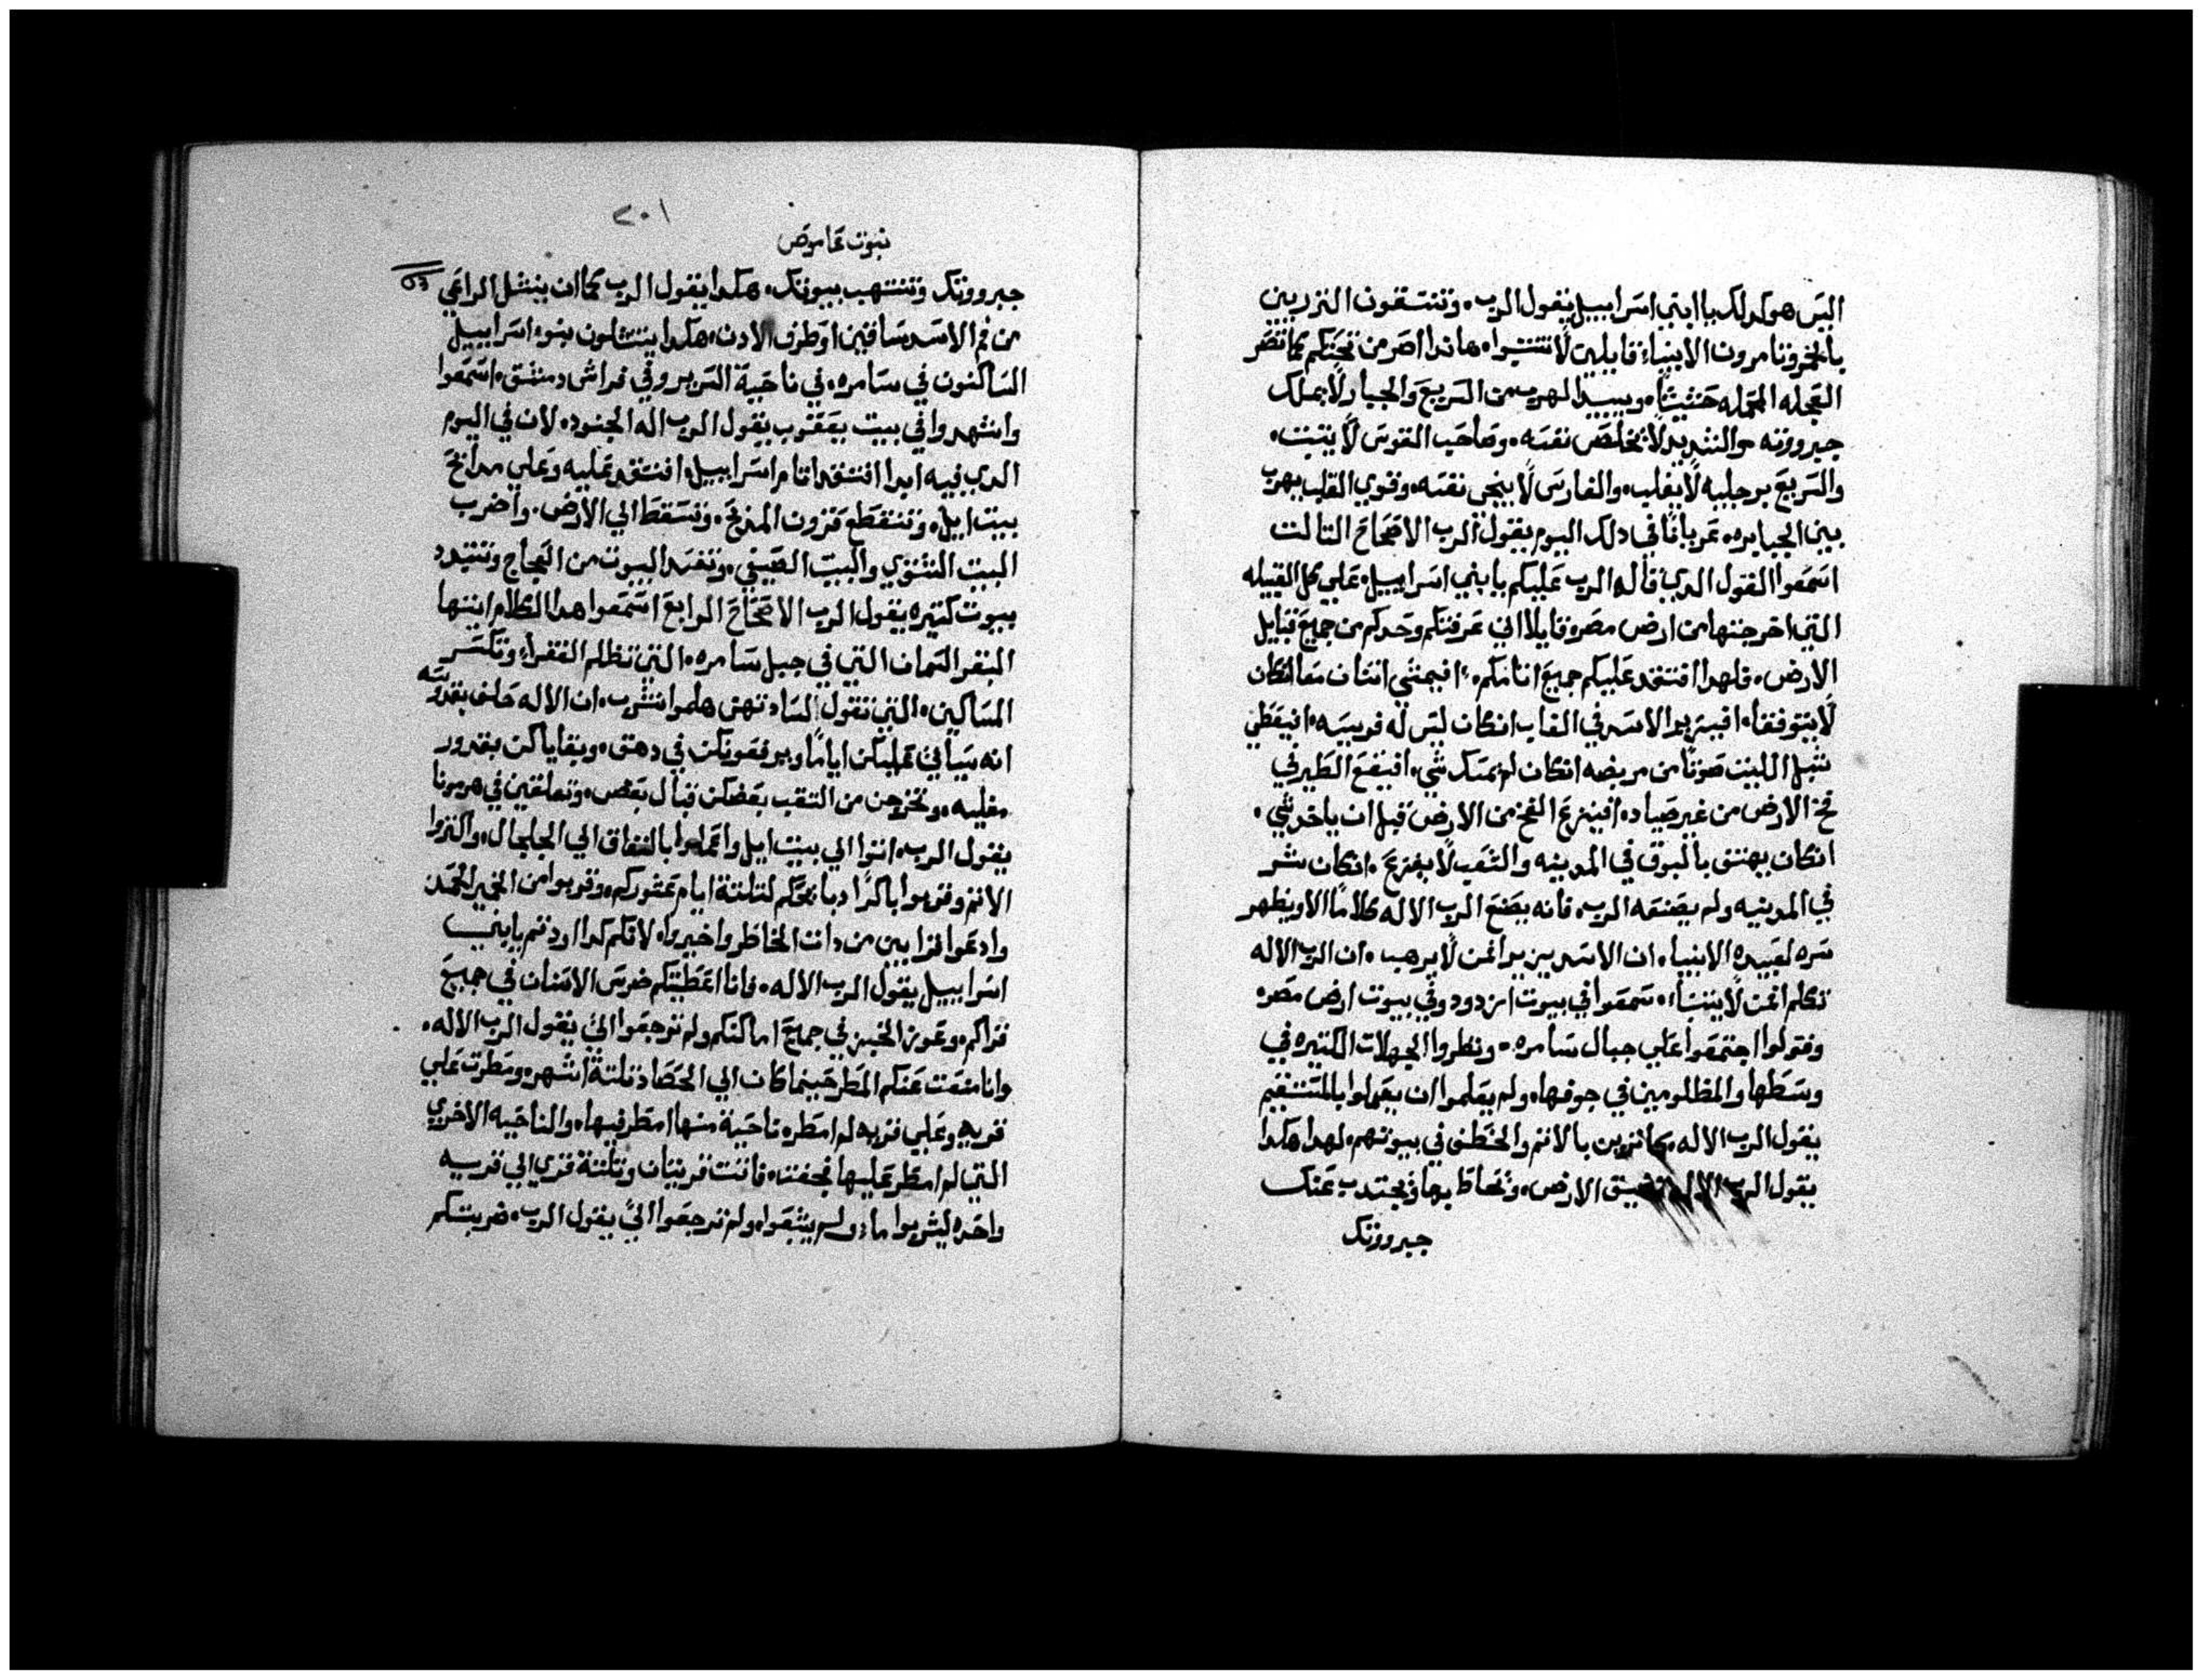 اليس هو كدلك يا ابني اسراييل يقول الرب، وتسقون النزريين
بالخمر وتامرون الانبياء قايلين لا تتنبوا، هاندا اصر من تحتكم كما تصر
العجله المحمله حشيشا، ويبيد الهرب من السريع والجبار لا يملك
جبروته، والشديد لا يخلص نفسه، وصاحب القوس لا يتبت،
والسريع برجليه لا يفلت، والفارس لا ينجي نفسه، وقوي القلب يهرب
بين الجبابره، عريانا في دلك اليوم يقول الرب الاصحاح التالت
اسمعوا القول الدي قاله الرب عليكم يا بني اسراييل، علي كل القبيله
التي اخرجتها من ارض مصر، قايلا اني عرفتكم وحدكم من جميع قبايل
الارض، فلهدا افتقد عليكم جميع اتامكم، افيمشي اتنان معا انكان
لا يتوفقا، افيزير الاسد في الغاب انكان ليس له فريسه، افيعطي
شبل الليت صوتا من مربضه انكان لم يمسك شي، افيقع الطير في
فخ الارض من غير صياد، افينزع الفخ من الارض قبل ان ياخد شي،
انكان يهتف بالبوق في المدينه والشعب لا يفزع، انكان شر
في المدينه ولم يصنعه الرب، فانه يصنع الرب الاله كلاما الا ويظهر
سره لعبيده الانبيا، ان الاسد يزير افمن لا يرهب، ان الرب الاله
تكلم افمن لا يتنبا، سمعوا في بيوت ازدود وفي بيوت ارض مصر
وقولوا اجتمعوا علي جبال سامره، ونظروا الجهلات الكتيره في
وسطها والمظلومين في جوفها، ولم يعلموا ان يعملوا بالمستقيم
يقول الرب الاله، كانزين بالاتم والخطف في بيوتهم، لهدا هكدا
يقول الرب الاله تضيق الارض، وتحاط بها وتجتدب عنك
جبروتك
٢٠١
نبوت عاموص
جبروتك وتنتهب بيوتك، هكدا يقول الرب كما ان ينشل الراعي
من فم الاسد ساقين او طرف الادن، هكدا ينتشلون بنوء اسراييل
الساكنون في سامره، في ناحية السرير وفي فراش دمشق، اسمعوا
واشهدوا في بيت يعقوب يقول الرب اله الجنود، لان في اليوم
الدي فيه ابدا افتقد اتام اسراييل، افتقد عليه وعلي مدابح
بيت ايل، وتنقطع قرون المدبح، وتسقط الي الارض، واضرب
البيت الشتوي والبيت الصيفي، وتفسد البيوت من العجاج وتتبدد
بيوت كتيره يقول الرب الاصحاح الرابع اسمعوا هدا الكلام ايتها
البقر السمان التي في جبل سامره، التي تظلم الفقراء وتكسر
المساكين، التي تقول لسادتهن هلموا نشرب، ان الاله حلف بقدوسه
انه سياتي عليكن اياما ويرفعونكن في دهق، وبقاياكن بقدور
مغليه، وتخرجن من التقب بعضكن قبال بعض، وتعلقين في هرمونا
يقول الرب، اتوا الي بيت ايل واعملوا بالنفاق الي الجلجال، واكتروا
الاتم وقربوا باكرا دبايحكم لتلتة ايام عشوركم، وقربوا من الخمير الحمد
وادعوا قرابين من دات الخاطر واخبروا، لانكم كدا اردتم يا بني
اسراييل يقول الرب الاله، فانا اعطيتكم ضرس الاسنان في جميع
قراكم، وعوز الخبز في جميع اماكنكم ولم ترجعوا الي يقول الرب الاله،
وانا منعت عنكم المطر حينما كان الي الحصاد تلتة اشهر، ومطرت علي
قريه وعلي قريه لم امطر، ناحية منها امطر فيها، والناحيه الاخري
التي لم امطر عليها نجفت، فاتت قريتان وتلتة قري الي قريه
واحده ليشربوا ماء ولم يشبعوا، ولم ترجعوا الي يقول الرب، ضربتكم